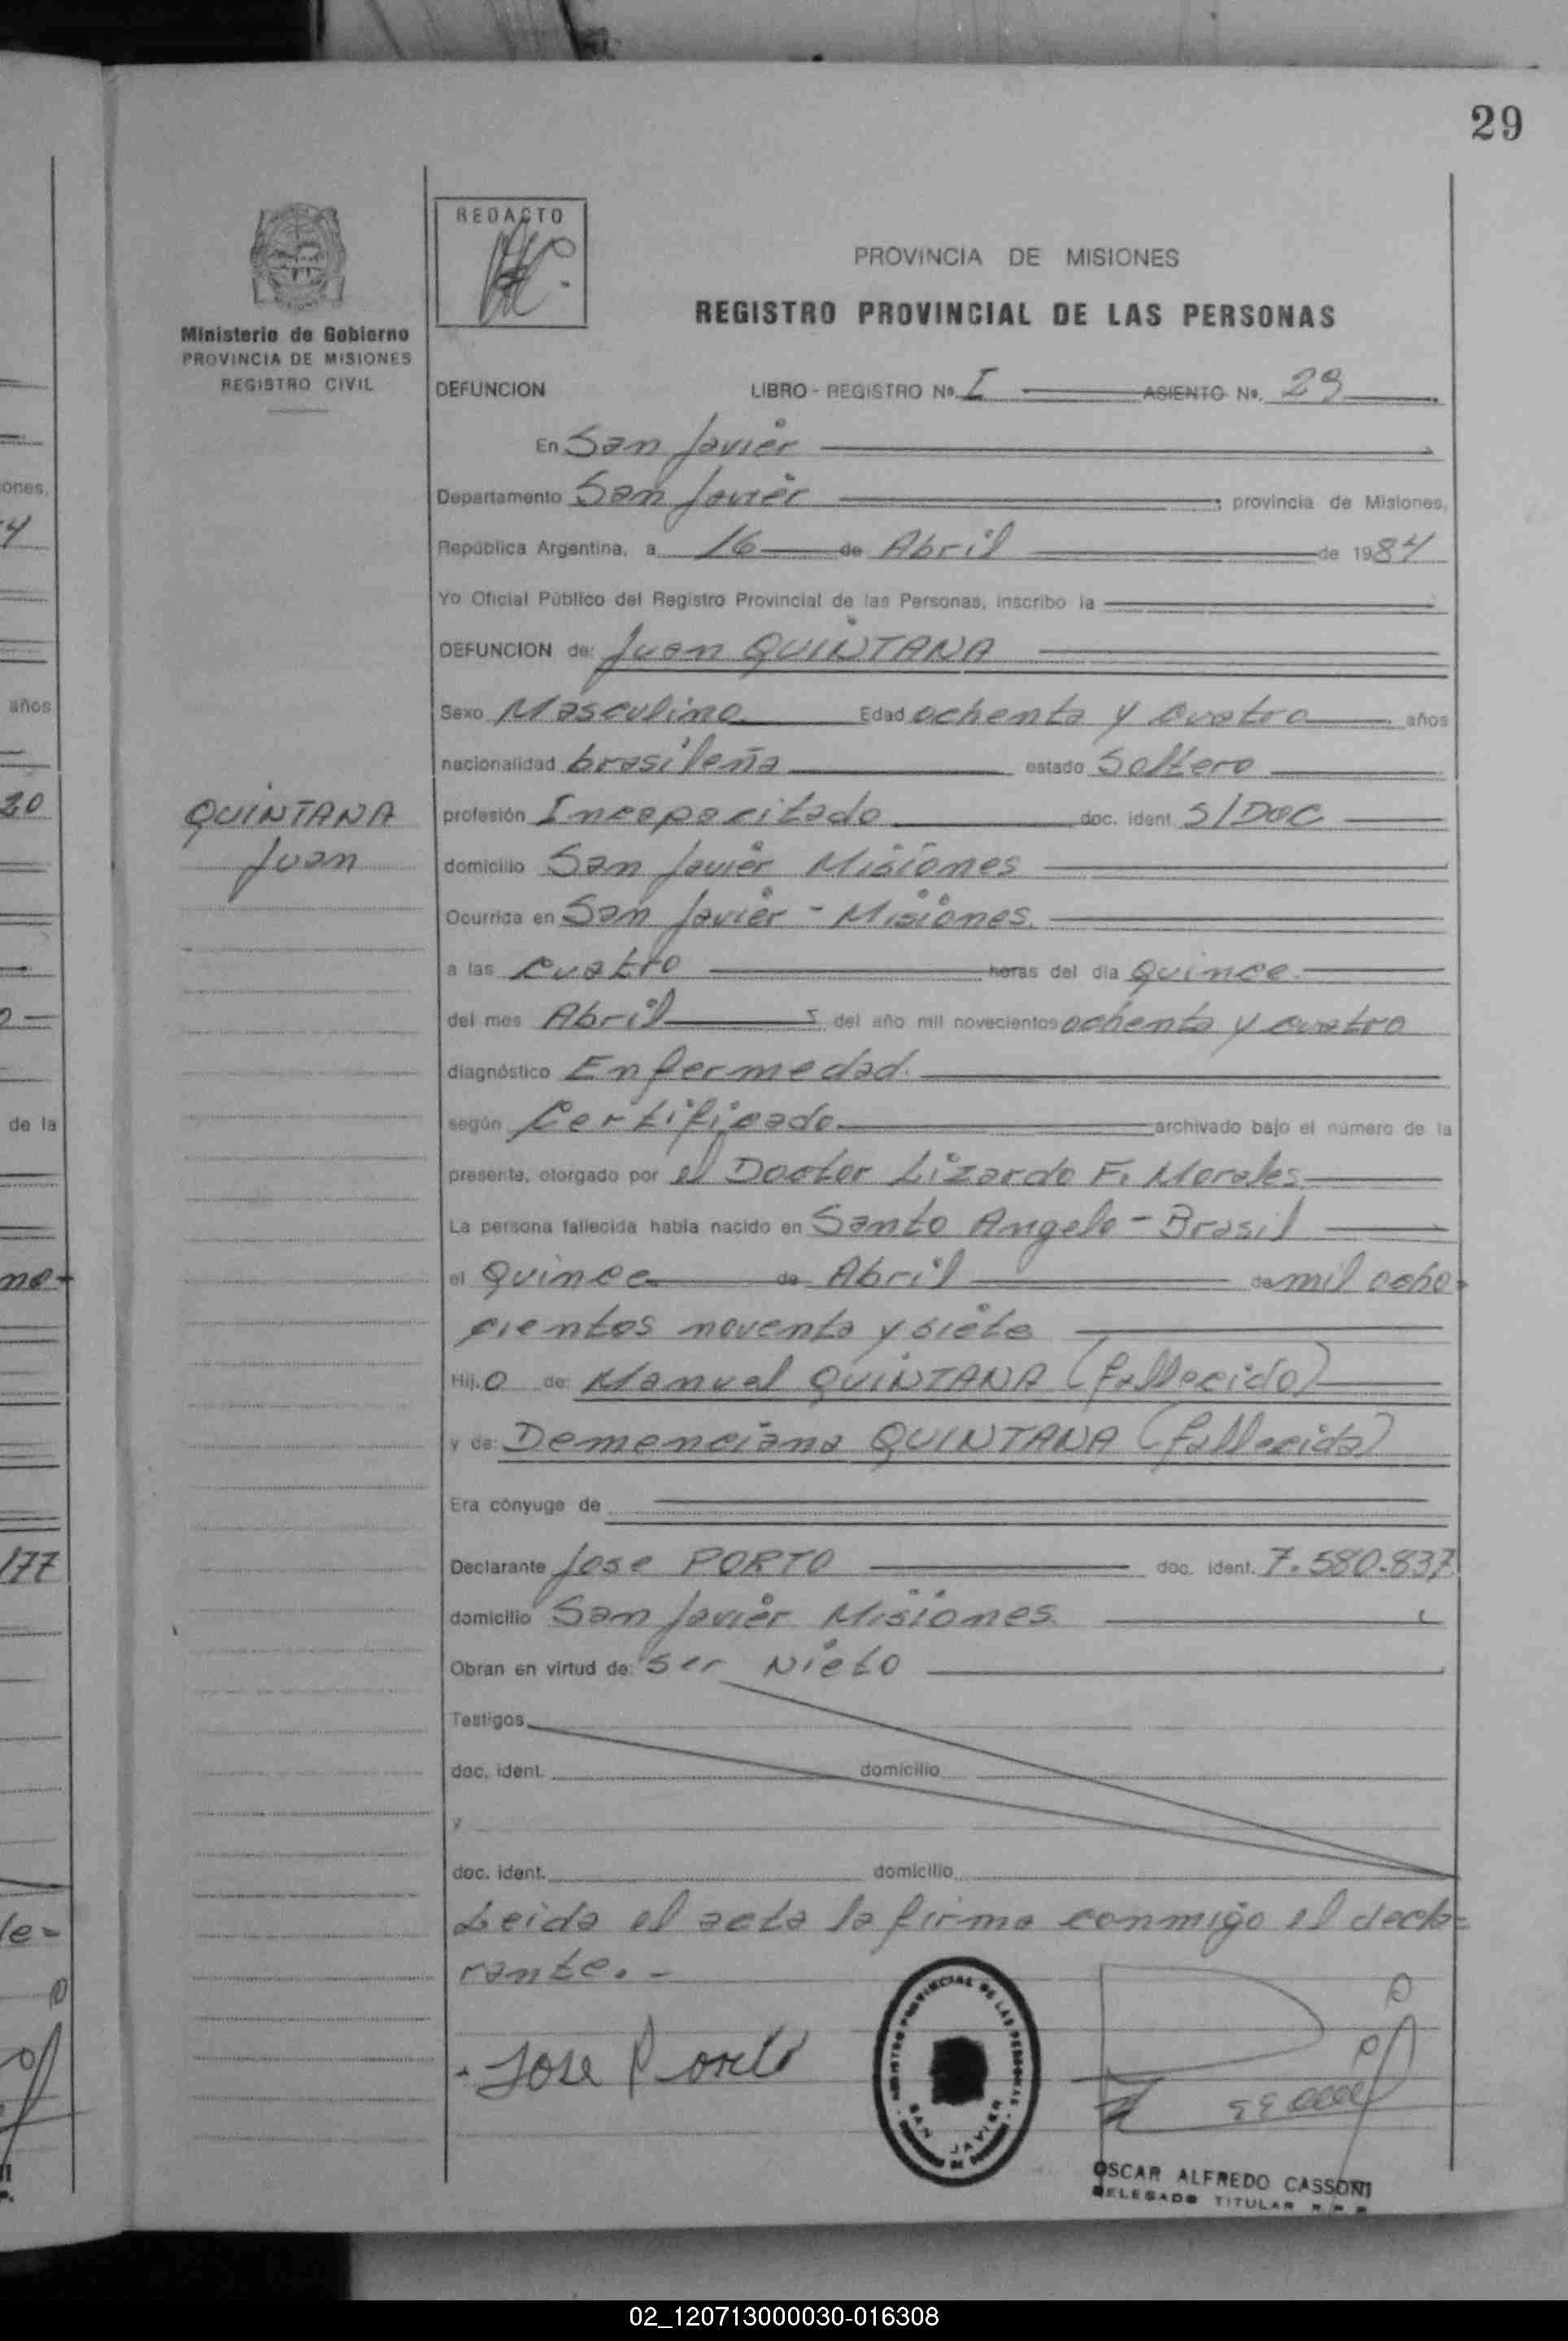 29
REDACTO
PROVINCIA DE MISIONES
REGISTRO PROVINCIAL DE LAS PERSONAS
Ministerio de Gobierno
PROVINCIA DE MISIONES
REGISTRO CIVIL
DEFUNCION LIBRO - REGISTRO Nº. I ASIENTO Nº. 29
En San Javier
Departamento San Javier provincia de Misiones,
República Argentina, a 16 de Abril de 1984
Yo Oficial Público del Registro Provincial de las Personas, inscribo la
DEFUNCION de: Juan QUINTANA
Sexo Masculino Edad ochenta y cuatro años
nacionalidad brasileña estado Soltero
QUINTANA
Juan
profesión Incapacitado doc. ident. S/DOC
domicilio San Javier Misiones
Ocurrida en San Javier - Misiones.
a las cuatro horas del día quince
del mes Abril del año mil novecientos ochenta y cuatro
diagnóstico Enfermedad.
según Certificado archivado bajo el número de la
presente, otorgado por el Doctor Lizardo F. Morales
La persona fallecida había nacido en Santo Angelo - Brasil
el Quince de Abril de mil ocho-
cientos noventa y siete
Hij.o de: Manuel QUINTANA (fallecido)
y de: Demenciana QUINTANA (fallecida)
Era cónyuge de
Declarante Jose PORTO doc. ident. 7.580.837
domicilio San Javier Misiones.
Obran en virtud de: ser Nieto
Testigos
doc. ident. domicilio
y
doc. ident. domicilio
Leida el acta la firma conmigo el decla-
rante. -
Jose Porto
REGISTRO PROVINCIAL DE LAS PERSONAS
SAN JAVIER
OSCAR ALFREDO CASSONI
DELEGADO TITULAR
ones,
4
años
30
de la
ne-
177
le-
02_120713000030-016308